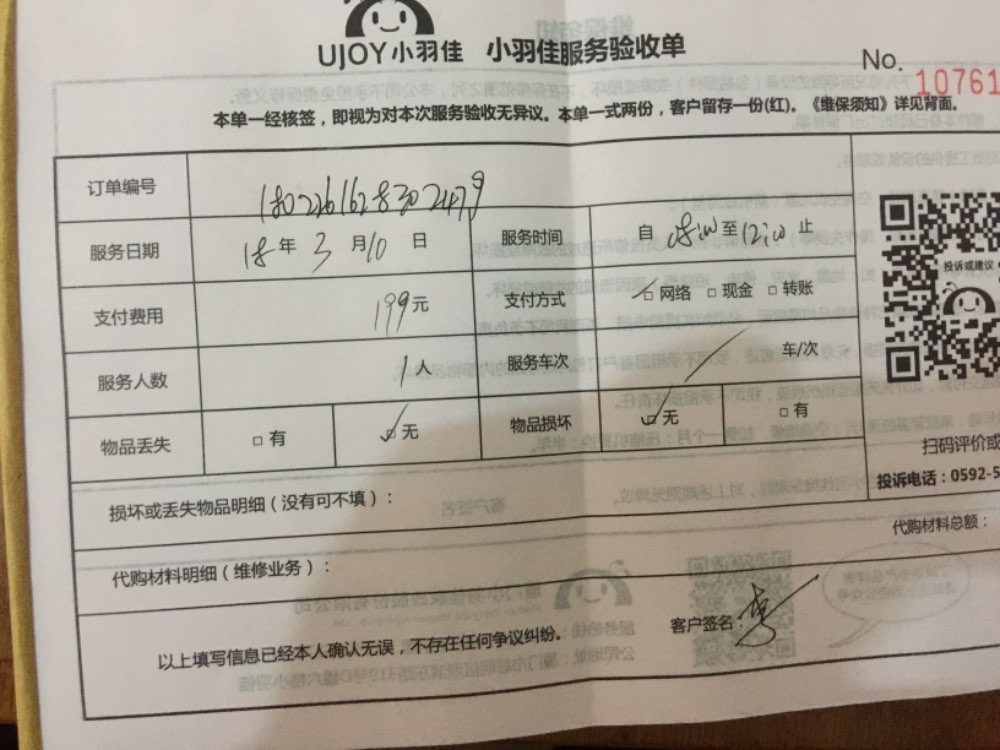 UJOY小羽佳 小羽佳服务验收单
No. 10761
本单一经核签，即视为对本次服务验收无异议。本单一式两份，客户留存一份(红)。《维保须知》详见背面。
订单编号 1802261628302479
服务日期 18年3月10日 服务时间 自 08:00 至 12:00 止
支付费用 199元 支付方式 □网络 □现金 □转账
服务人数 1人 服务车次 车/次
物品丢失 □有 □无 物品损坏 □无 □有
投诉或建议
扫码评价或
投诉电话：0592-5
损坏或丢失物品明细（没有可不填）：
代购材料总额：
代购材料明细（维修业务）：
以上填写信息已经本人确认无误，不存在任何争议纠纷。 客户签名：李